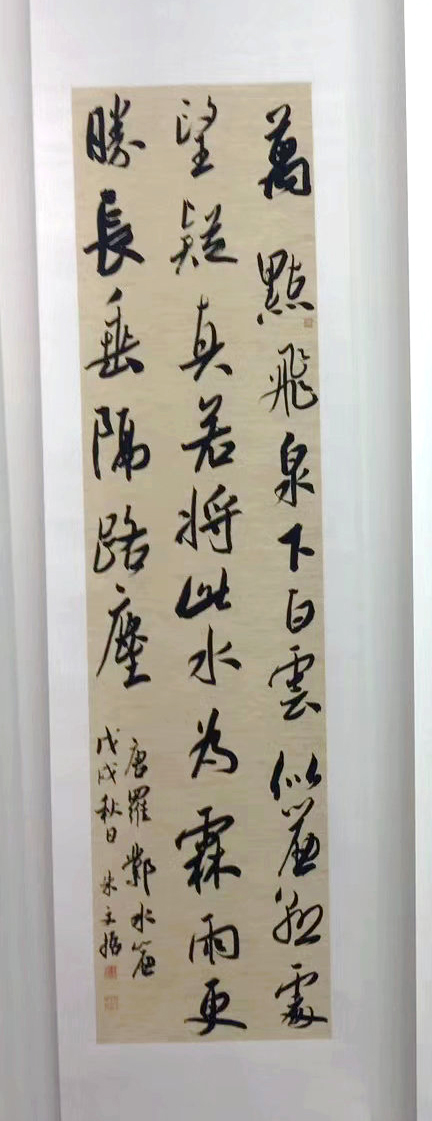 萬點飛泉下白雲似簾懸處
望疑真若將此水為霖雨更
勝長垂隔路塵
唐羅鄴水簾
戊戌秋日朱文